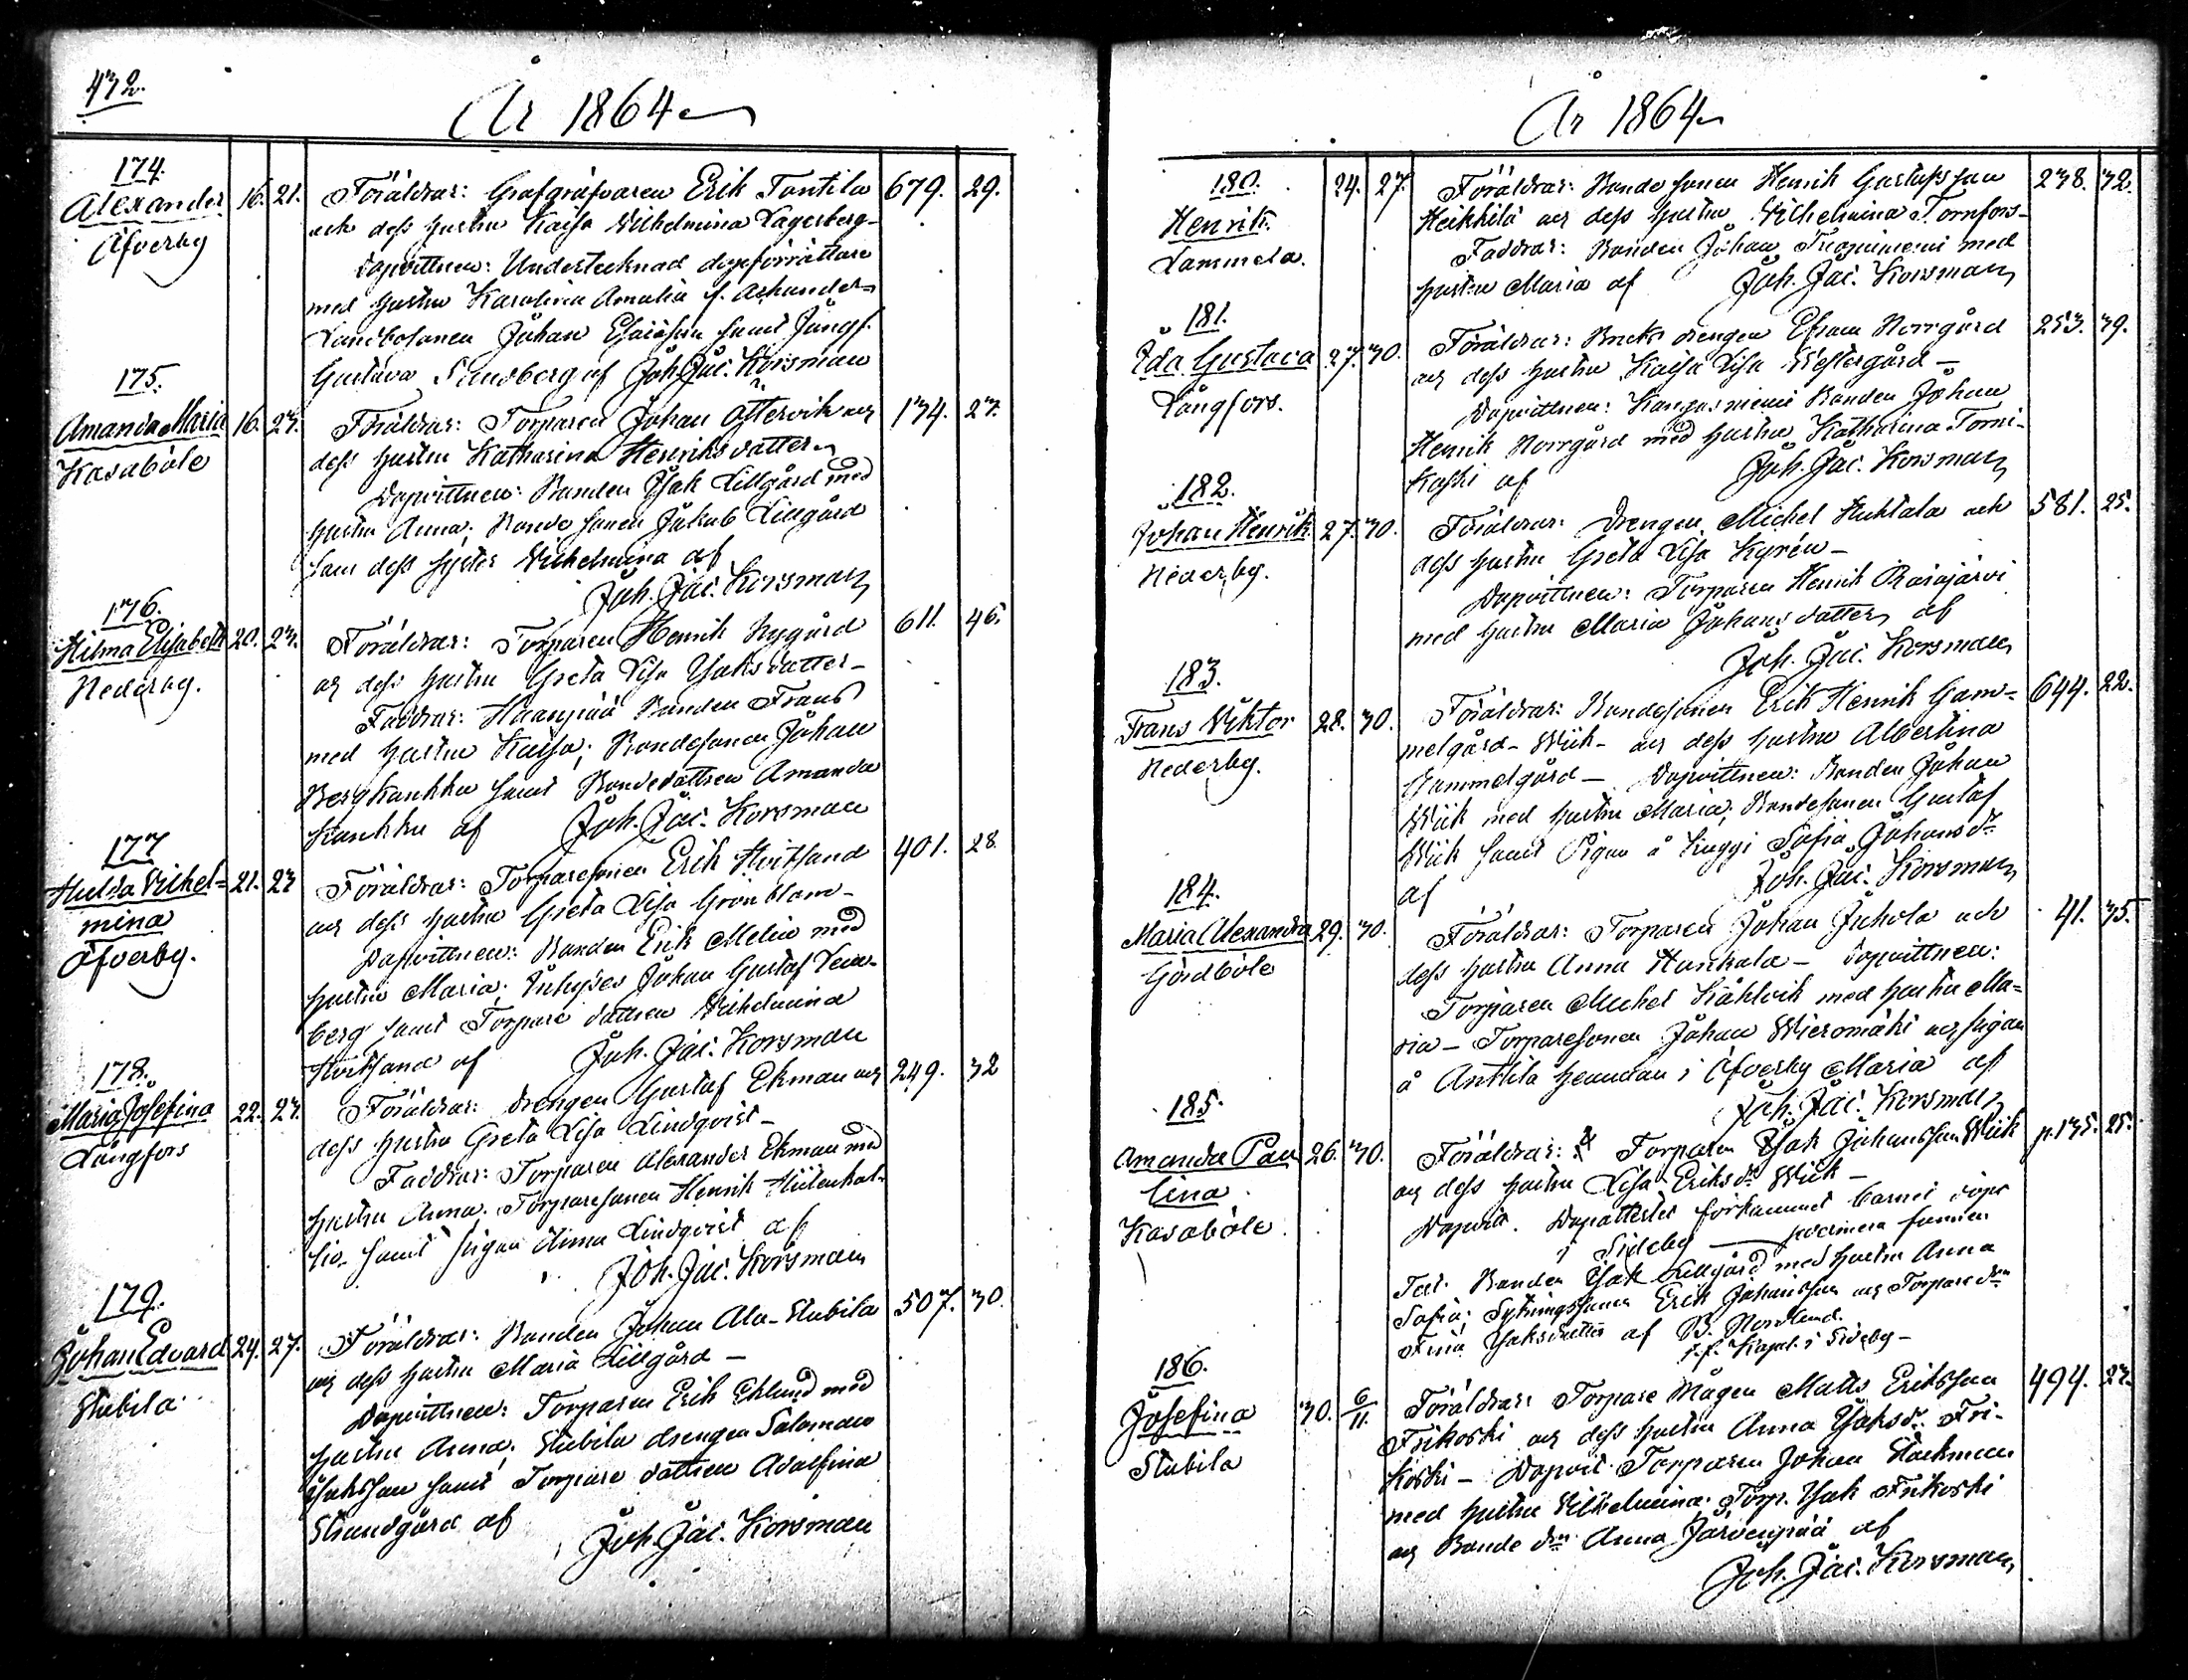 472.
År 1864
174.
Alexander 16. 21. Föräldrar: Grafgräfvaren Erik Tantila 679. 29.
Äfverby och dess hustru Kaisa Vilhelmina Lagerberg-
Dopvittnen: Undertecknad dopförrättare
med hustru Karolina Amalia f.
Landbosonen Johan Esaiasson samt Jungf.
Gustava Sundberg af Joh. Jac. Korsman
175.
Amanda Maria 16. 27. Föräldrar: Torparen Johan Ottervik och 174. 27.
Kasaböle dess hustru Katharina Henriksdatter
Dopvittnen: Bonden Isak Lillgård med
hustru Anna; Bondesonen Jakob Lillgård
samt dess syster Vilhelmina af
Joh. Jac. Korsman
176.
Hilma Elisabeth 20. 27. Föräldrar: Torparen Henrik Nygård 611. 46.
Nederby. och dess hustru Greta Lisa Isaksdatter-
Faddrar: Haanpää Bonden Frans
med hustru Kaisa; Bondesonen Johan
Bergkankku samt Bondedottren Amanda
Kankku af Joh. Jac. Korsman
177
Hulda Vilhel= 21. 27 Föräldrar: Torparesonen Erik Hvitsand 401. 28.
mina och dess hustru Greta Lisa Grönblom-
Äfverby. Dopvittnen: Bonden Erik Melin med
hustru Maria; Inhyses Johan Gustaf
berg samt Torpare dottren Vilhelmina
Hvitsand af Joh. Jac. Korsman
178.
Maria Josefina 22. 27. Föräldrar: Drengen Gustaf Ekman och 249. 32
Långfors dess hustru Greta Lisa Lindqvist-
Faddrar: Torparen Alexander Ekman med
hustru Anna. Torparesonen Henrik
samt pigan Anna Lindqvist af
Joh. Jac. Korsman
179.
Johan Edvard 24. 27. Föräldrar: Bonden Johan Ala-Stubila 507. 30.
Stubila och dess hustru Maria Lillgård -
Dopvittnen: Torparen Erik Eklund med
hustru Anna; Stubila drengen Salomon
Isaksson samt Torpare dottren Adolfina
Strandgård af Joh. Jac. Korsman
År 1864
180. 24. 27. Föräldrar: Bonde sonen Henrik Gustafsson 238. 32.
Henrik. Heikkilä och dess hustru Vilhelmina Tornfors-
Lammela. Faddrar: Bonden Johan med
hustru Maria af Joh. Jac. Korsman
181.
Ida Gustava 27. 30. Föräldrar: Bruks drengen Efraim Norrgård 253. 39.
Långfors. och dess hustru Kaisa Lisa Westergård -
Dopvittnen: Kangasniemi Bonden Johan
Henrik Norrgård med hustru Katharina Torni-
koski af Joh. Jac. Korsman
182.
Johan Henrik 27. 30. Föräldrar: Drengen Michel Huhtala och 581. 25.
Nederby. dess hustru Greta Lisa Kyrén -
Dopvittnen: Torparen Henrik Rasajärvi
med hustru Maria Johansdatter af
Joh. Jac. Korsman
183.
Frans Viktor 28. 30. Föräldrar: Bondesonen Erik Henrik Gam= 644. 22.
Nederby. melgård-Wiik- och dess hustru Albertina
Gammelgård - Dopvittnen: Bonden Johan
Wiik med hustru Maria; Bondesonen Gustaf
Wiik samt Pigan å Sofia Johansdr
af Joh. Jac. Korsman
184.
Maria Alexandra 29. 30. Föräldrar: Torparen Johan Juhola och 41. 35.
Gördböle dess hustru Anna Hankala - Dopvittnen:
Torparen Michel med hustru Ma=
ria - Torparesonen Johan Wieromäki och pigan
å Anttila hemman i Äfverby Maria af
Joh. Jac. Korsman
185.
Amanda Pau 26. 30. Föräldrar: Torparen Isak Johansson Wiik p. 135. 25.
lina och dess hustru Lisa Eriksdr Wiik -
Kasaböle. Dopvit. Dopattestet förkommet barnet döpt
i Sideby
Test. Bonden Isak Lillgård med hustru Anna
Sofia; Sytningssonen Erik Johansson och Torpare drn
Fina Isaksdatter af B. Nordlund.
t.f. Kapel. i Sideby -
186.
Josefina 30. 6/11. Föräldrar: Torpare Mågen Matts Eriksson 494. 27.
Stubila Frikoski och dess hustru Anna Isaksdr. Fri-
koski - Dopvit. Torparen Johan Stackman
med hustru Vilhelmina. Torp. Isak Frikoski
och Bonde drn Anna Järvenpää af
Joh. Jac. Korsman